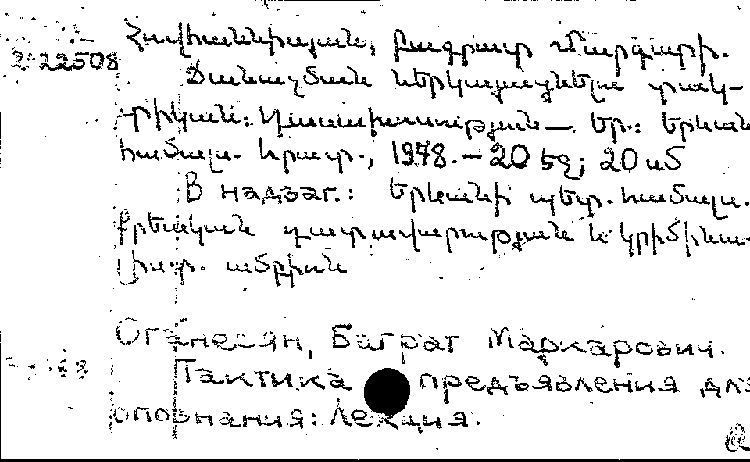 Հովհաննիսյան, Բագրատ Մարգարի.
2-22508
Ճանաչման ներկայացնելու տակ-
տիկան: Դասախոսություն — Եր.: Երևան
համալս. հրատ., 1978. - 20 էջ; 20 սմ
В надзаг.: Երևանի պետ. համալս.
Քրեական դատավարության և կրիմինա-
լիստ. ամբիոն
Оганесян, Баграт Маркарович.
Тактика предъявления для
опознания: Лекция.